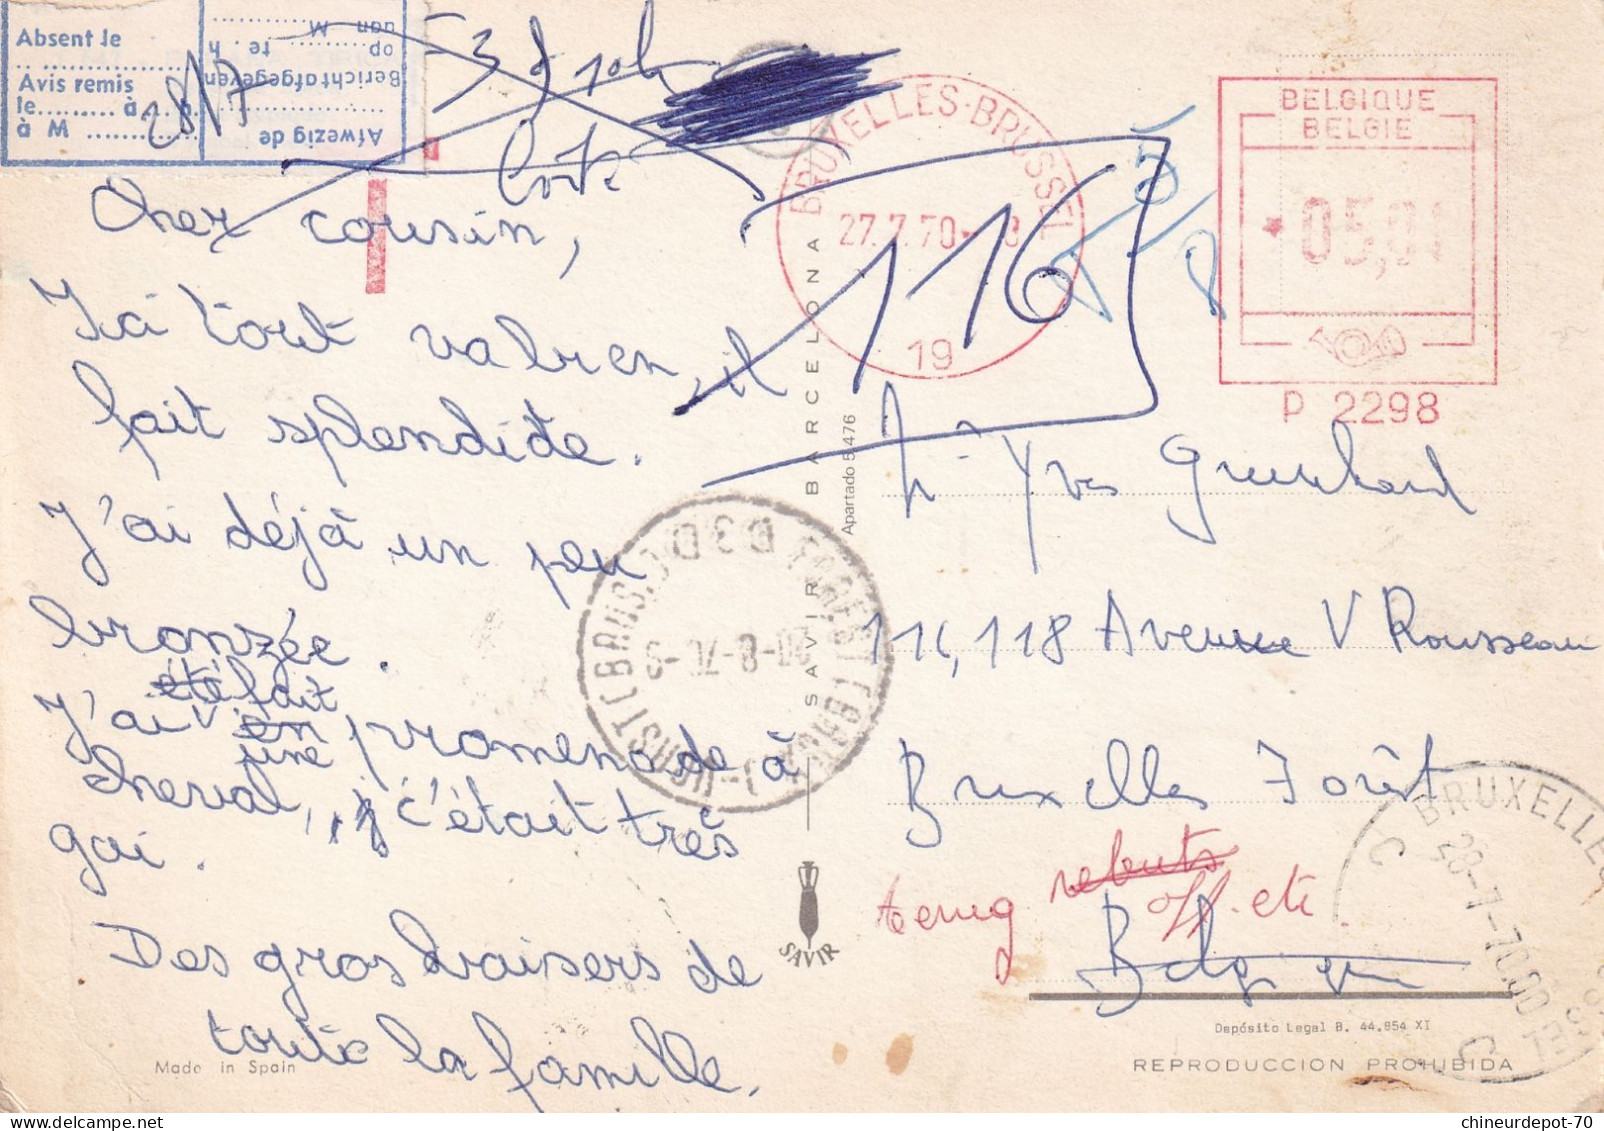 Absent le
Avis remis
le......... à
à M ............
28/7
Afwezig de
Bericht afgegeven
op ........ te . h
aan M
BELGIQUE
BELGIE
05,01
P 2298
BRUXELLES-BRUSSEL
27.7.70
19
116
Cher cousin,
Ici tout va bien, il
fait splendide.
J'ai déjà un peu
bronzée.
été fait
J'ai en promenade à
une
cheval, c'était très
gai.
Des gros baisers de
toute la famille.
SAVIR BARCELONA
Apartado 5.476
Yves
116, 118 Avenue V Rousseau
Bruxelles Forêt
terug rebuts
Belgique
FOREST (BRUX.)
VORST (BRUS.)
D3D
BRUXELLES
28-7-70
C
C
SAVIR
Made in Spain
Depósito Legal B. 44.854 XI
REPRODUCCION PROHIBIDA
chineurdepot-70